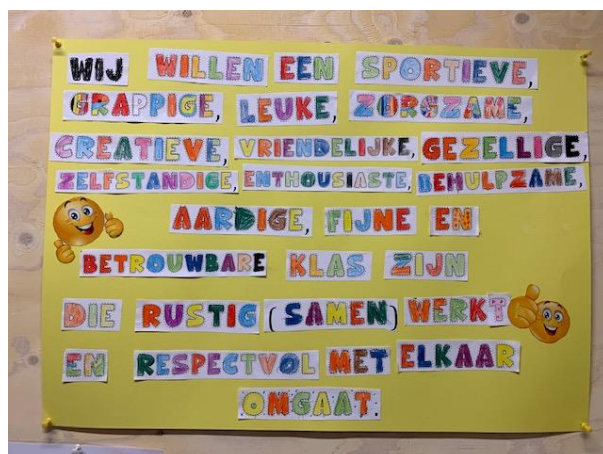 WIJ WILLEN EEN SPORTIEVE,
GRAPPIGE, LEUKE, ZORGZAME,
CREATIEVE, VRIENDELIJKE, GEZELLIGE,
ZELFSTANDIGE, ENTHOUSIASTE, BEHULPZAME,
AARDIGE, FIJNE EN
BETROUWBARE KLAS ZIJN
DIE RUSTIG (SAMEN) WERKT
EN RESPECTVOL MET ELKAAR
OMGAAT.